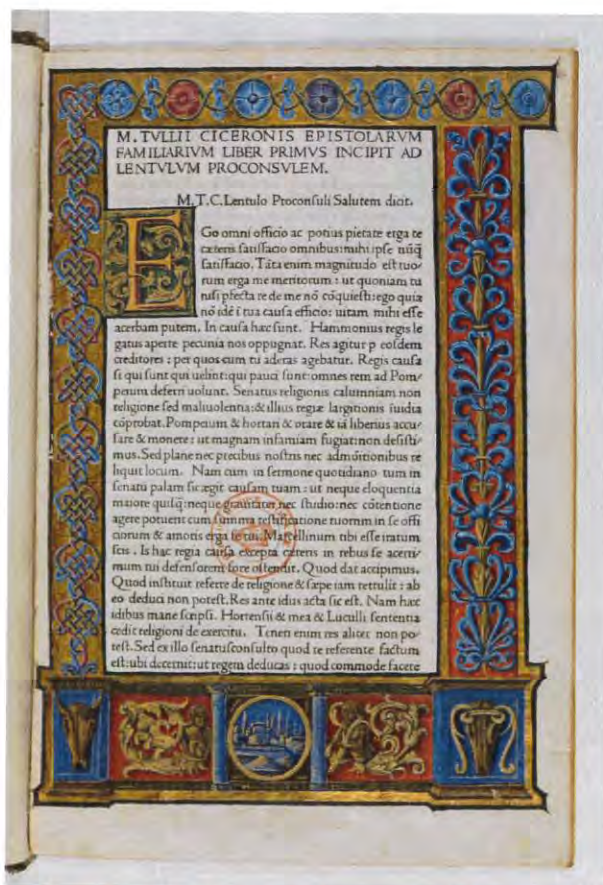 M. TVLLII CICERONIS EPISTOLARVM
FAMILIARIVM LIBER PRIMVS INCIPIT AD
LENTVLVM PROCONSVLEM.
M.T.C. Lentulo Proconsuli Salutem dicit.
EGo omni officio ac potius pietate erga te
cæteris satisfacio omnibus: mihi ipse nũq̃
satisfacio. Tãta enim magnitudo est tuo/
rum erga me meritorum: ut quoniam tu
nisi pfecta re de me nõ cõquiesti: ego quia
nõ idẽ ĩ tua causa efficio: uitam mihi esse
acerbam putem. In causa hæc sunt. Hammonius regis le
gatus aperte pecunia nos oppugnat. Res agitur p eosdem
creditores: per quos cum tu aderas agebatur. Regis causa
si qui sunt qui uelint: qui pauci sunt: omnes rem ad Pom/
peium deferri uolunt. Senatus religionis calumniam non
religione sed maliuolentia: & illius regiæ largitionis ĩuidia
cõprobat. Pompeium & hortari & orare & iã liberius accu/
sare & monere: ut magnam infamiam fugiat: non desisti/
mus. Sed plane nec precibus nostris nec admõitionibus re
liquit locum. Nam cum in sermone quotidiano tum in
senatu palam sic ægit causam tuam: ut neque eloquentia
maiore quisq̃: neque grauitate: nec studio: nec cõtentione
agere potuerit cum summa testificatione tuorum in se offi
ciorum & amoris erga te sui. Marcellinum tibi esse iratum
scis. Is hac regia causa excepta cæteris in rebus se acerri/
mum tui defensorem fore ostendit. Quod dat accipimus.
Quod instituit referre de religione & sæpe iam retrulit: ab
eo deduci non potest. Res ante idius acta sic est. Nam hæc
idibus mane scripsi. Hortensii & mea & Luculli sententia
cedit religioni de exercitu. Teneri enim res aliter non po/
test. Sed ex illo senatusconsulto quod te referente factum
est: ubi decernit: ut regem deducas: quod commode facere